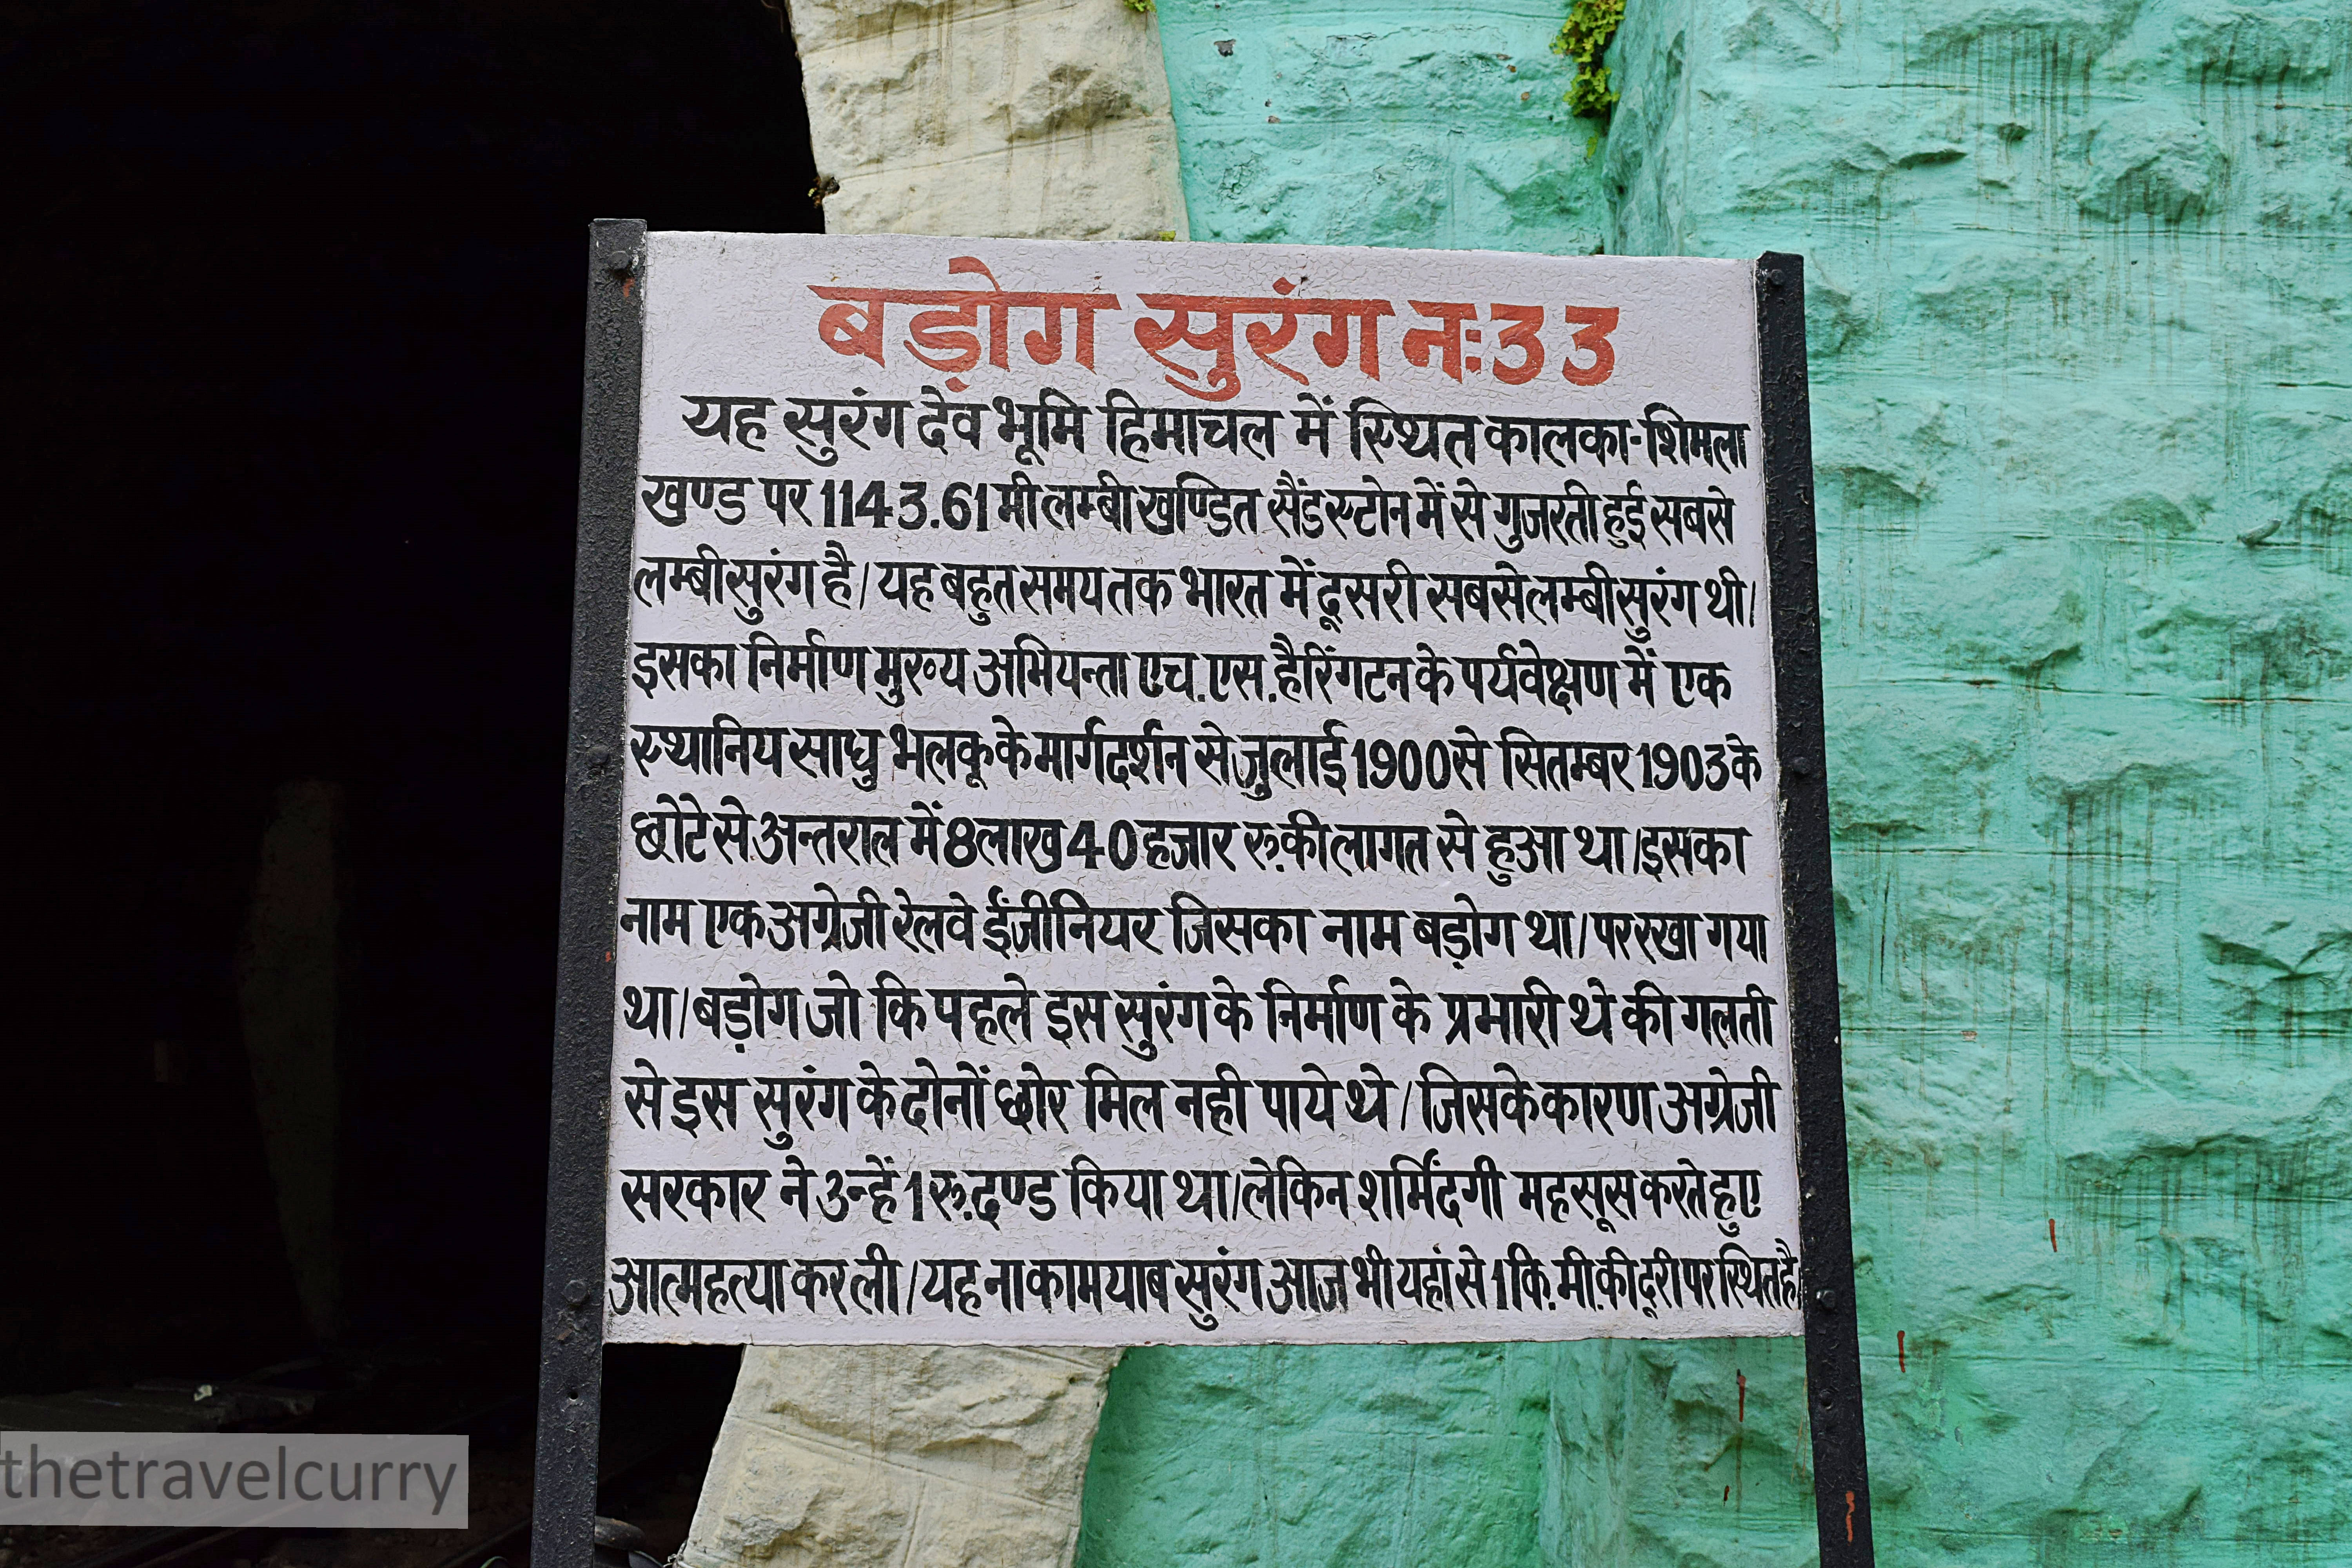 बड़ोग सुरंग नः33
यह सुरंग देव भूमि हिमाचल में स्थित कालका-शिमला
खण्ड पर 1143.61 मी लम्बी खण्डित सैंडस्टोन में से गुजरती हुई सबसे
लम्बी सुरंग है/ यह बहुत समय तक भारत में दूसरी सबसे लम्बी सुरंग थी/
इसका निर्माण मुख्य अभियन्ता एच.एस.हैरिंगटन के पर्यवेक्षण में एक
स्थानिय साधु भलकू के मार्गदर्शन से जुलाई 1900 से सितम्बर 1903 के
छोटे से अन्तराल में 8 लाख 40 हजार रु.की लागत से हुआ था/इसका
नाम एक अग्रेजी रेलवे ईंजीनियर जिसका नाम बड़ोग था/पर रखा गया
था/बड़ोग जो कि पहले इस सुरंग के निर्माण के प्रभारी थे की गलती
से इस सुरंग के दोनों छोर मिल नही पाये थे/जिसके कारण अग्रेजी
सरकार ने उन्हें 1 रु.दण्ड किया था/लेकिन शर्मिंदगी महसूस करते हुए
आत्महत्या कर ली/यह नाकामयाब सुरंग आज भी यहां से 1 कि.मी.की दूरी पर स्थित है/
thetravelcurry